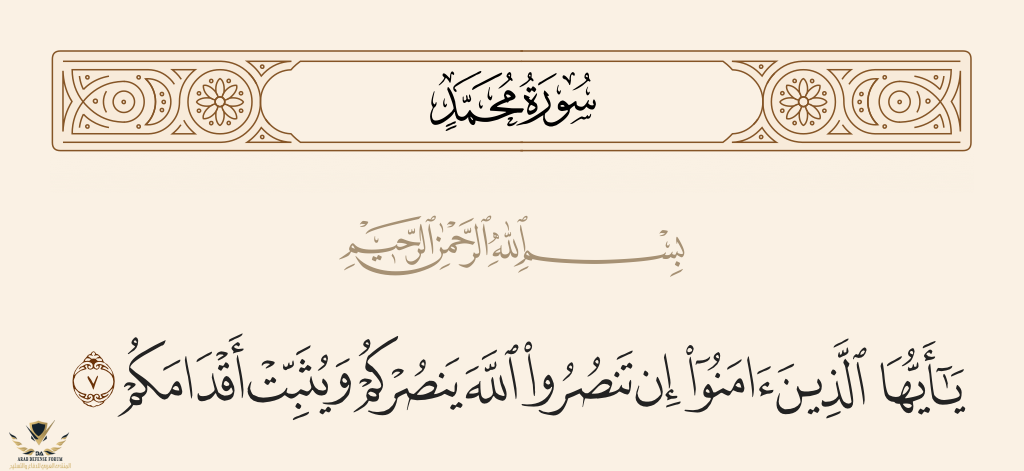 سُورَةُ مُحَمَّدٍ
بِسْمِ ٱللَّهِ ٱلرَّحْمَٰنِ ٱلرَّحِيمِ
يَـٰٓأَيُّهَا ٱلَّذِينَ ءَامَنُوٓا۟ إِن تَنصُرُوا۟ ٱللَّهَ يَنصُرْكُمْ وَيُثَبِّتْ أَقْدَامَكُمْ ٧
DA
ARAB DEFENSE FORUM
المنتدى العربي للدفاع والتسليح